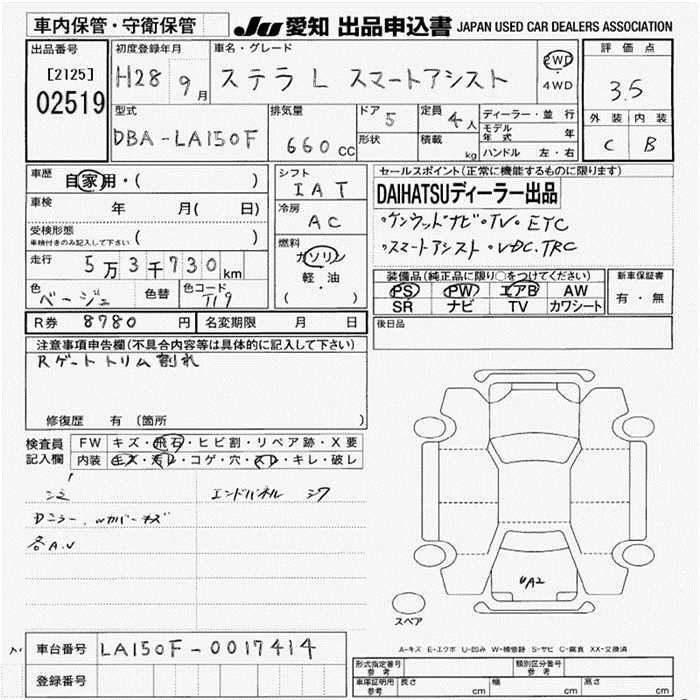 車内保管・守衛保管 JU 愛知 出品申込書 JAPAN USED CAR DEALERS ASSOCIATION
出品番号 初度登録年月 車名・グレード 評価点
[2125] H28 9月 ステラ L スマートアシスト 2WD・4WD 3.5
02519
型式 排気量 ドア 定員 ディーラー・並行 外装 内装
DBA-LA150F 660cc 5 4人 モデル年式 年 C B
形状 積載 kg ハンドル 左・右
車歴 自家用・( ) シフト IAT セールスポイント(正常に機能するものに限ります)
車検 年 月( 日) 冷房 AC DAIHATSUディーラー出品
受検形態 ( ) ・ケンウッドナビ・TV・ETC
車検付きのみ記入して下さい
走行 5万3千730km 燃料 ガソリン ・スマートアシスト・VDC.TRC
軽・油
( )
色 ベージュ 色替 色コード T19 装備品(純正品に限り○をつけてください) 新車保証書
PS PW エアB AW 有・無
SR ナビ TV カワシート
R券 8780円 名変期限 月 日 後日品
注意事項申告欄(不具合内容等は具体的に記入して下さい)
Rゲートトリム割れ
修復歴 有 (箇所 )
検査員記入欄 FW キズ・飛石・ヒビ割・リペア跡・X要
内装 キズ・汚レ・コゲ・穴・スレ・キレ・破レ
エンドパネル
Dミラー. カバーキズ
各A.U
UA2
スペア
A-キズ E-エクボ U-凹み W-補修跡 S-サビ C-腐食 XX-交換済
車台番号 LA150F-0017414
登録番号
形式指定番号 参考 類別区分番号 参考
車庫証明用 参考 長さ cm 幅 cm 高さ cm